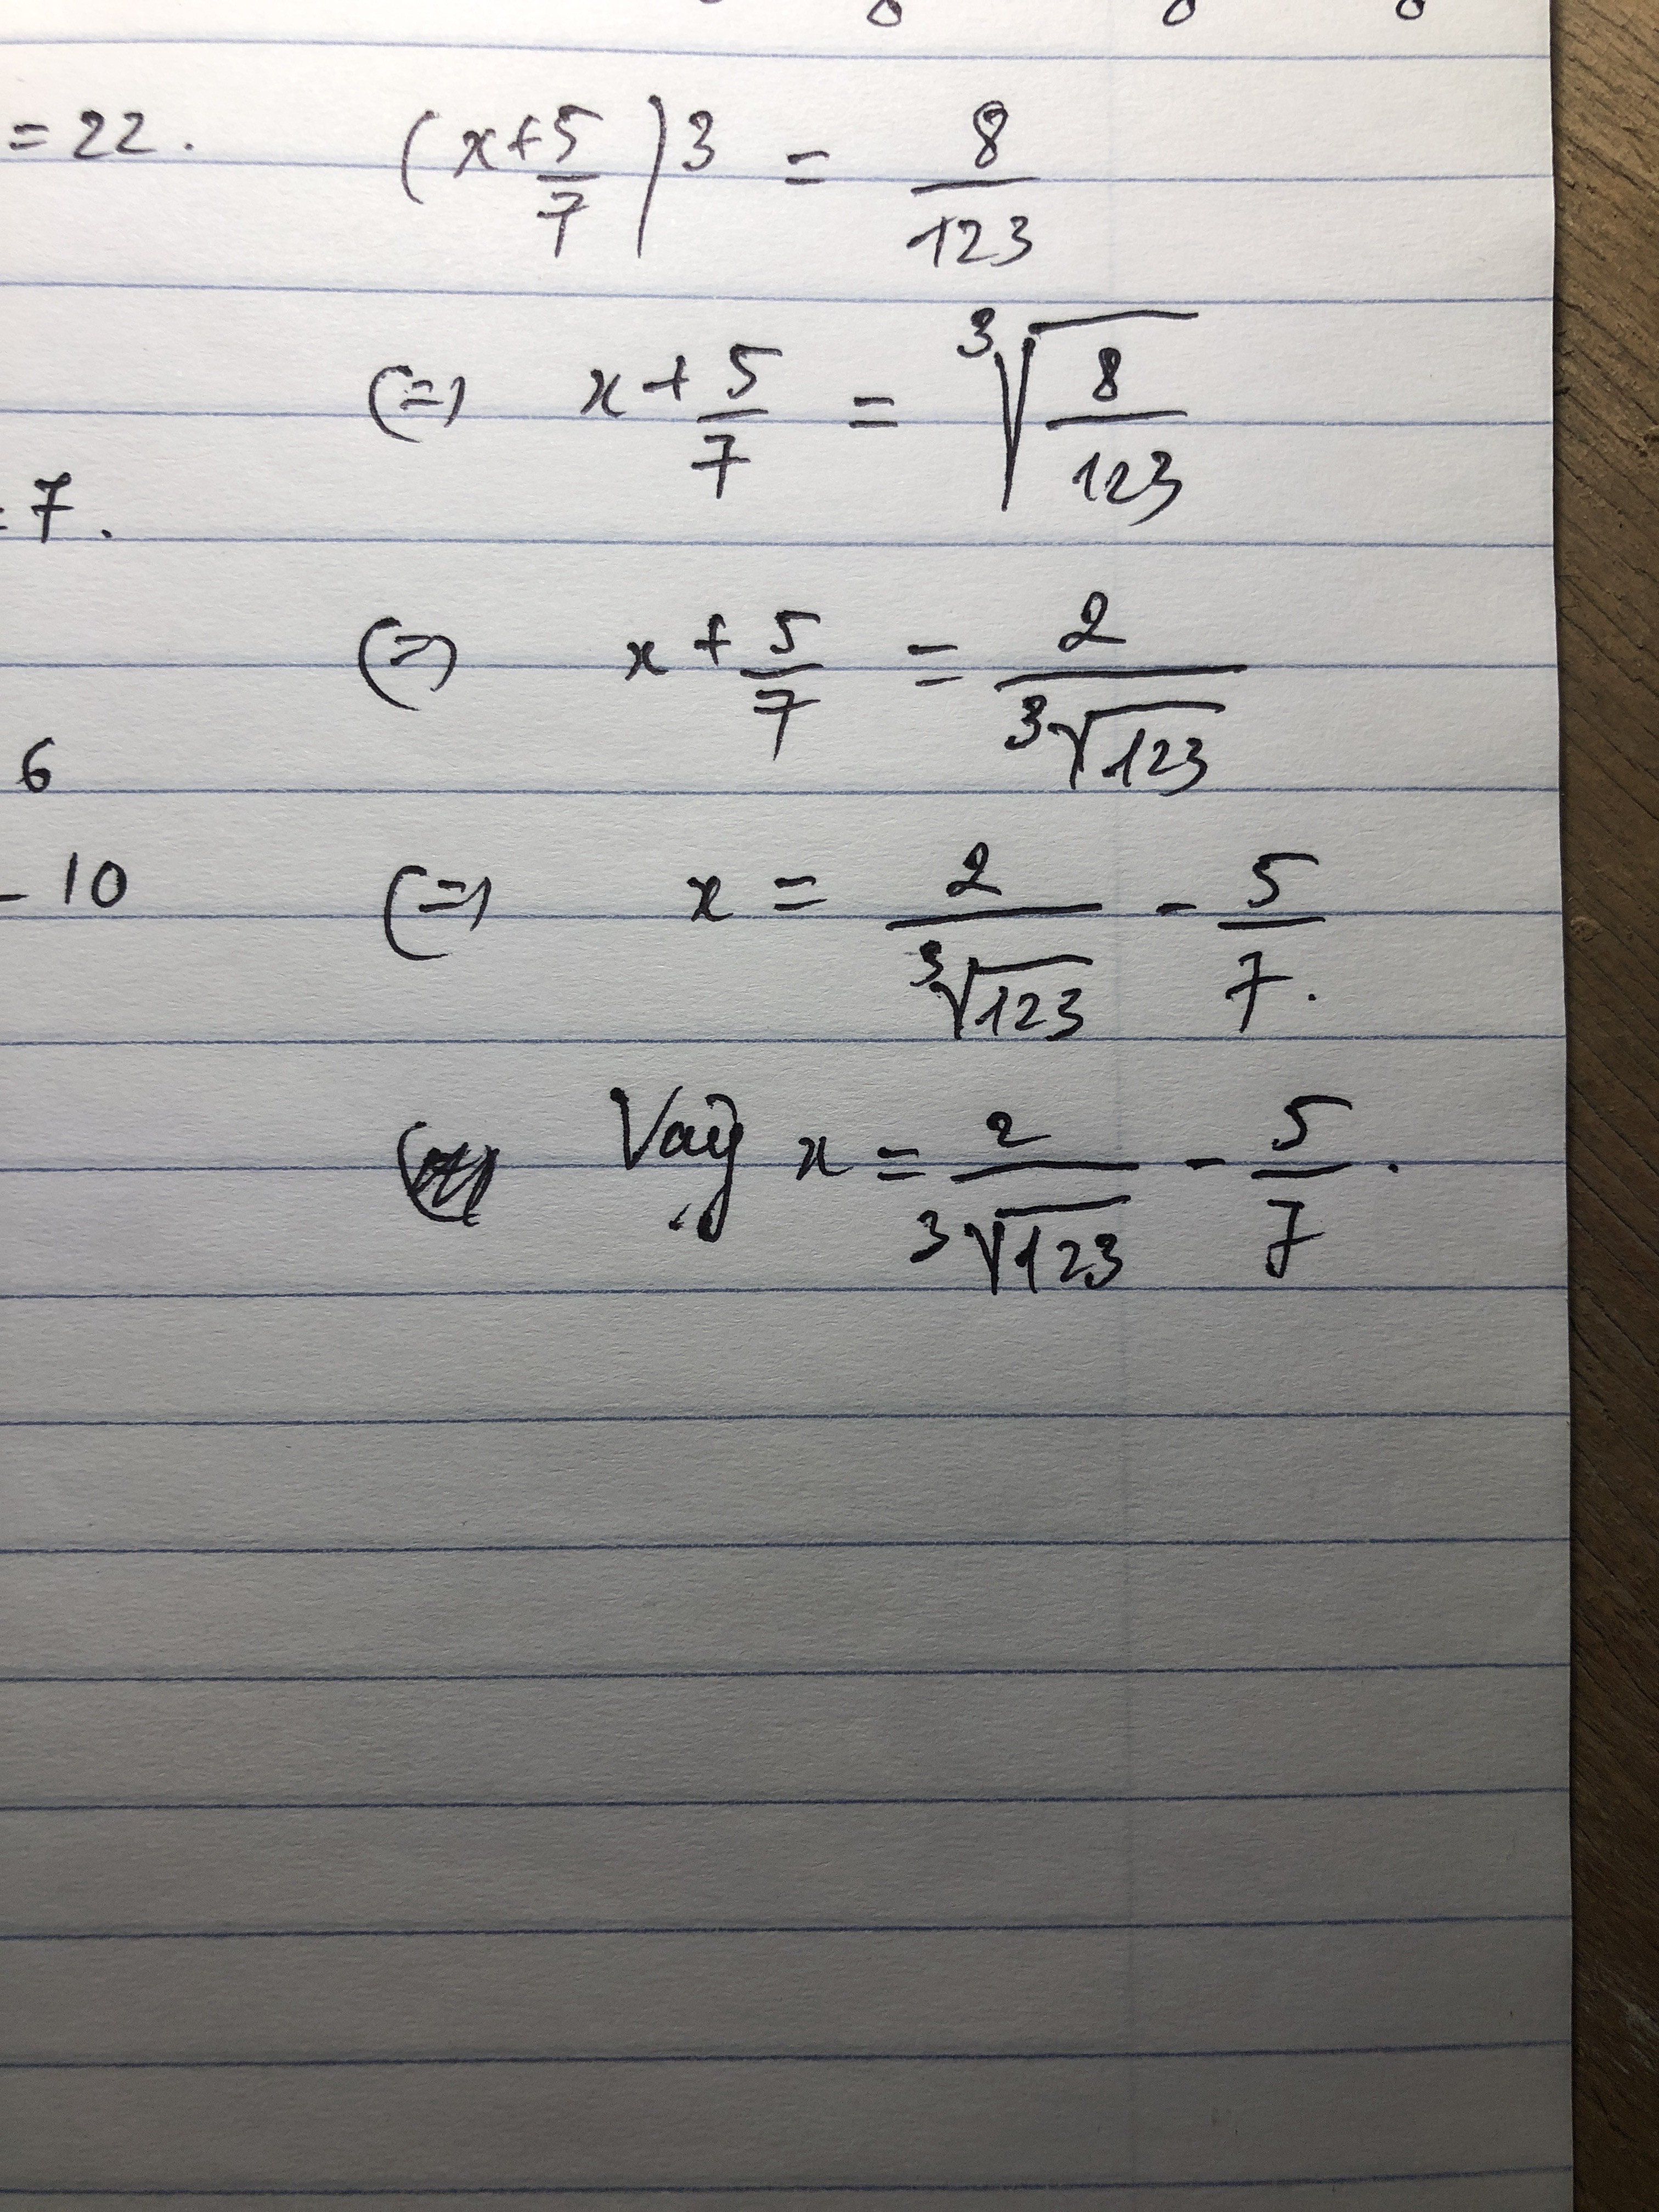 = 22. (x + 5/7)3 = 8/123
(=) x + 5/7 = ³√(8/123)
= 7.
(=) x + 5/7 = 2/³√123
6
- 10 (=) x = 2/³√123 - 5/7.
Vậy x = 2/³√123 - 5/7.